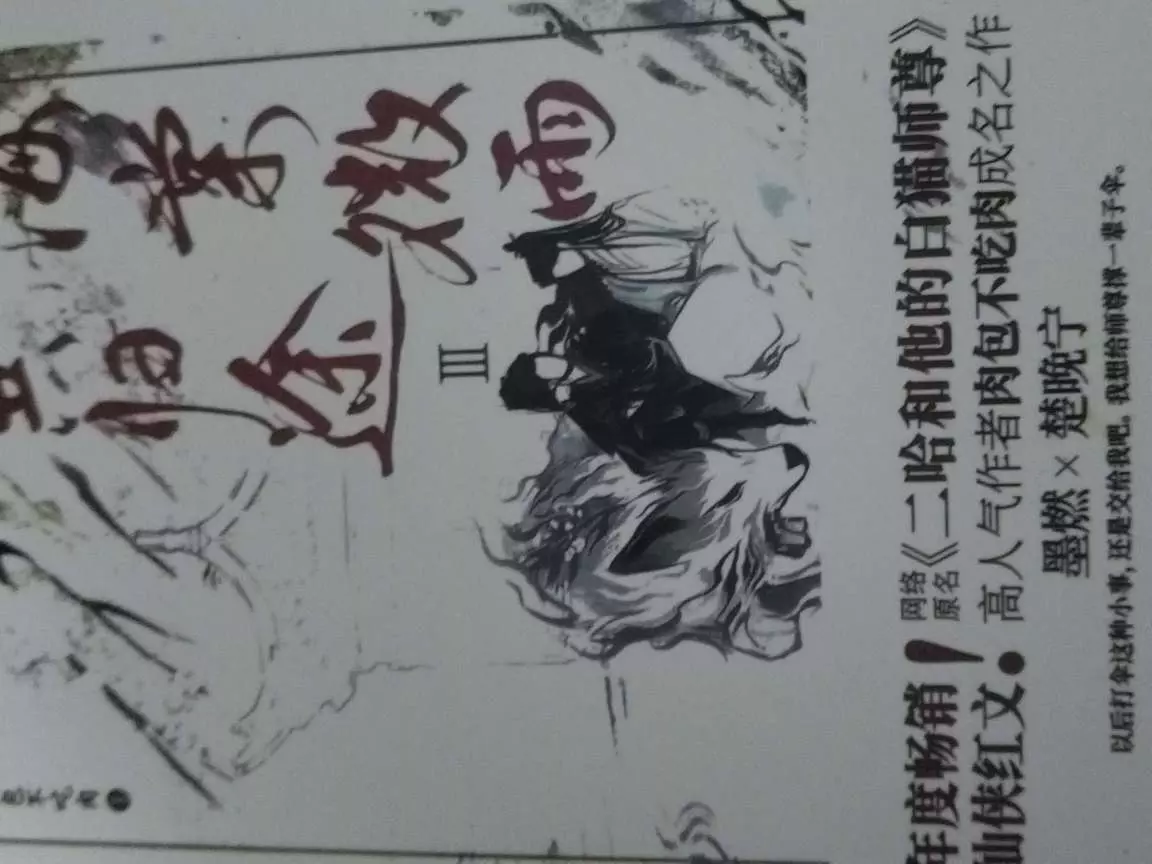 包不吃肉 著
III
年度畅销
仙侠红文
!
网络
原名
《二哈和他的白猫师尊》
高人气作者肉包不吃肉成名之作
墨燃 × 楚晚宁
以后打伞这种小事,还是交给我吧。我想给师尊撑一辈子伞。